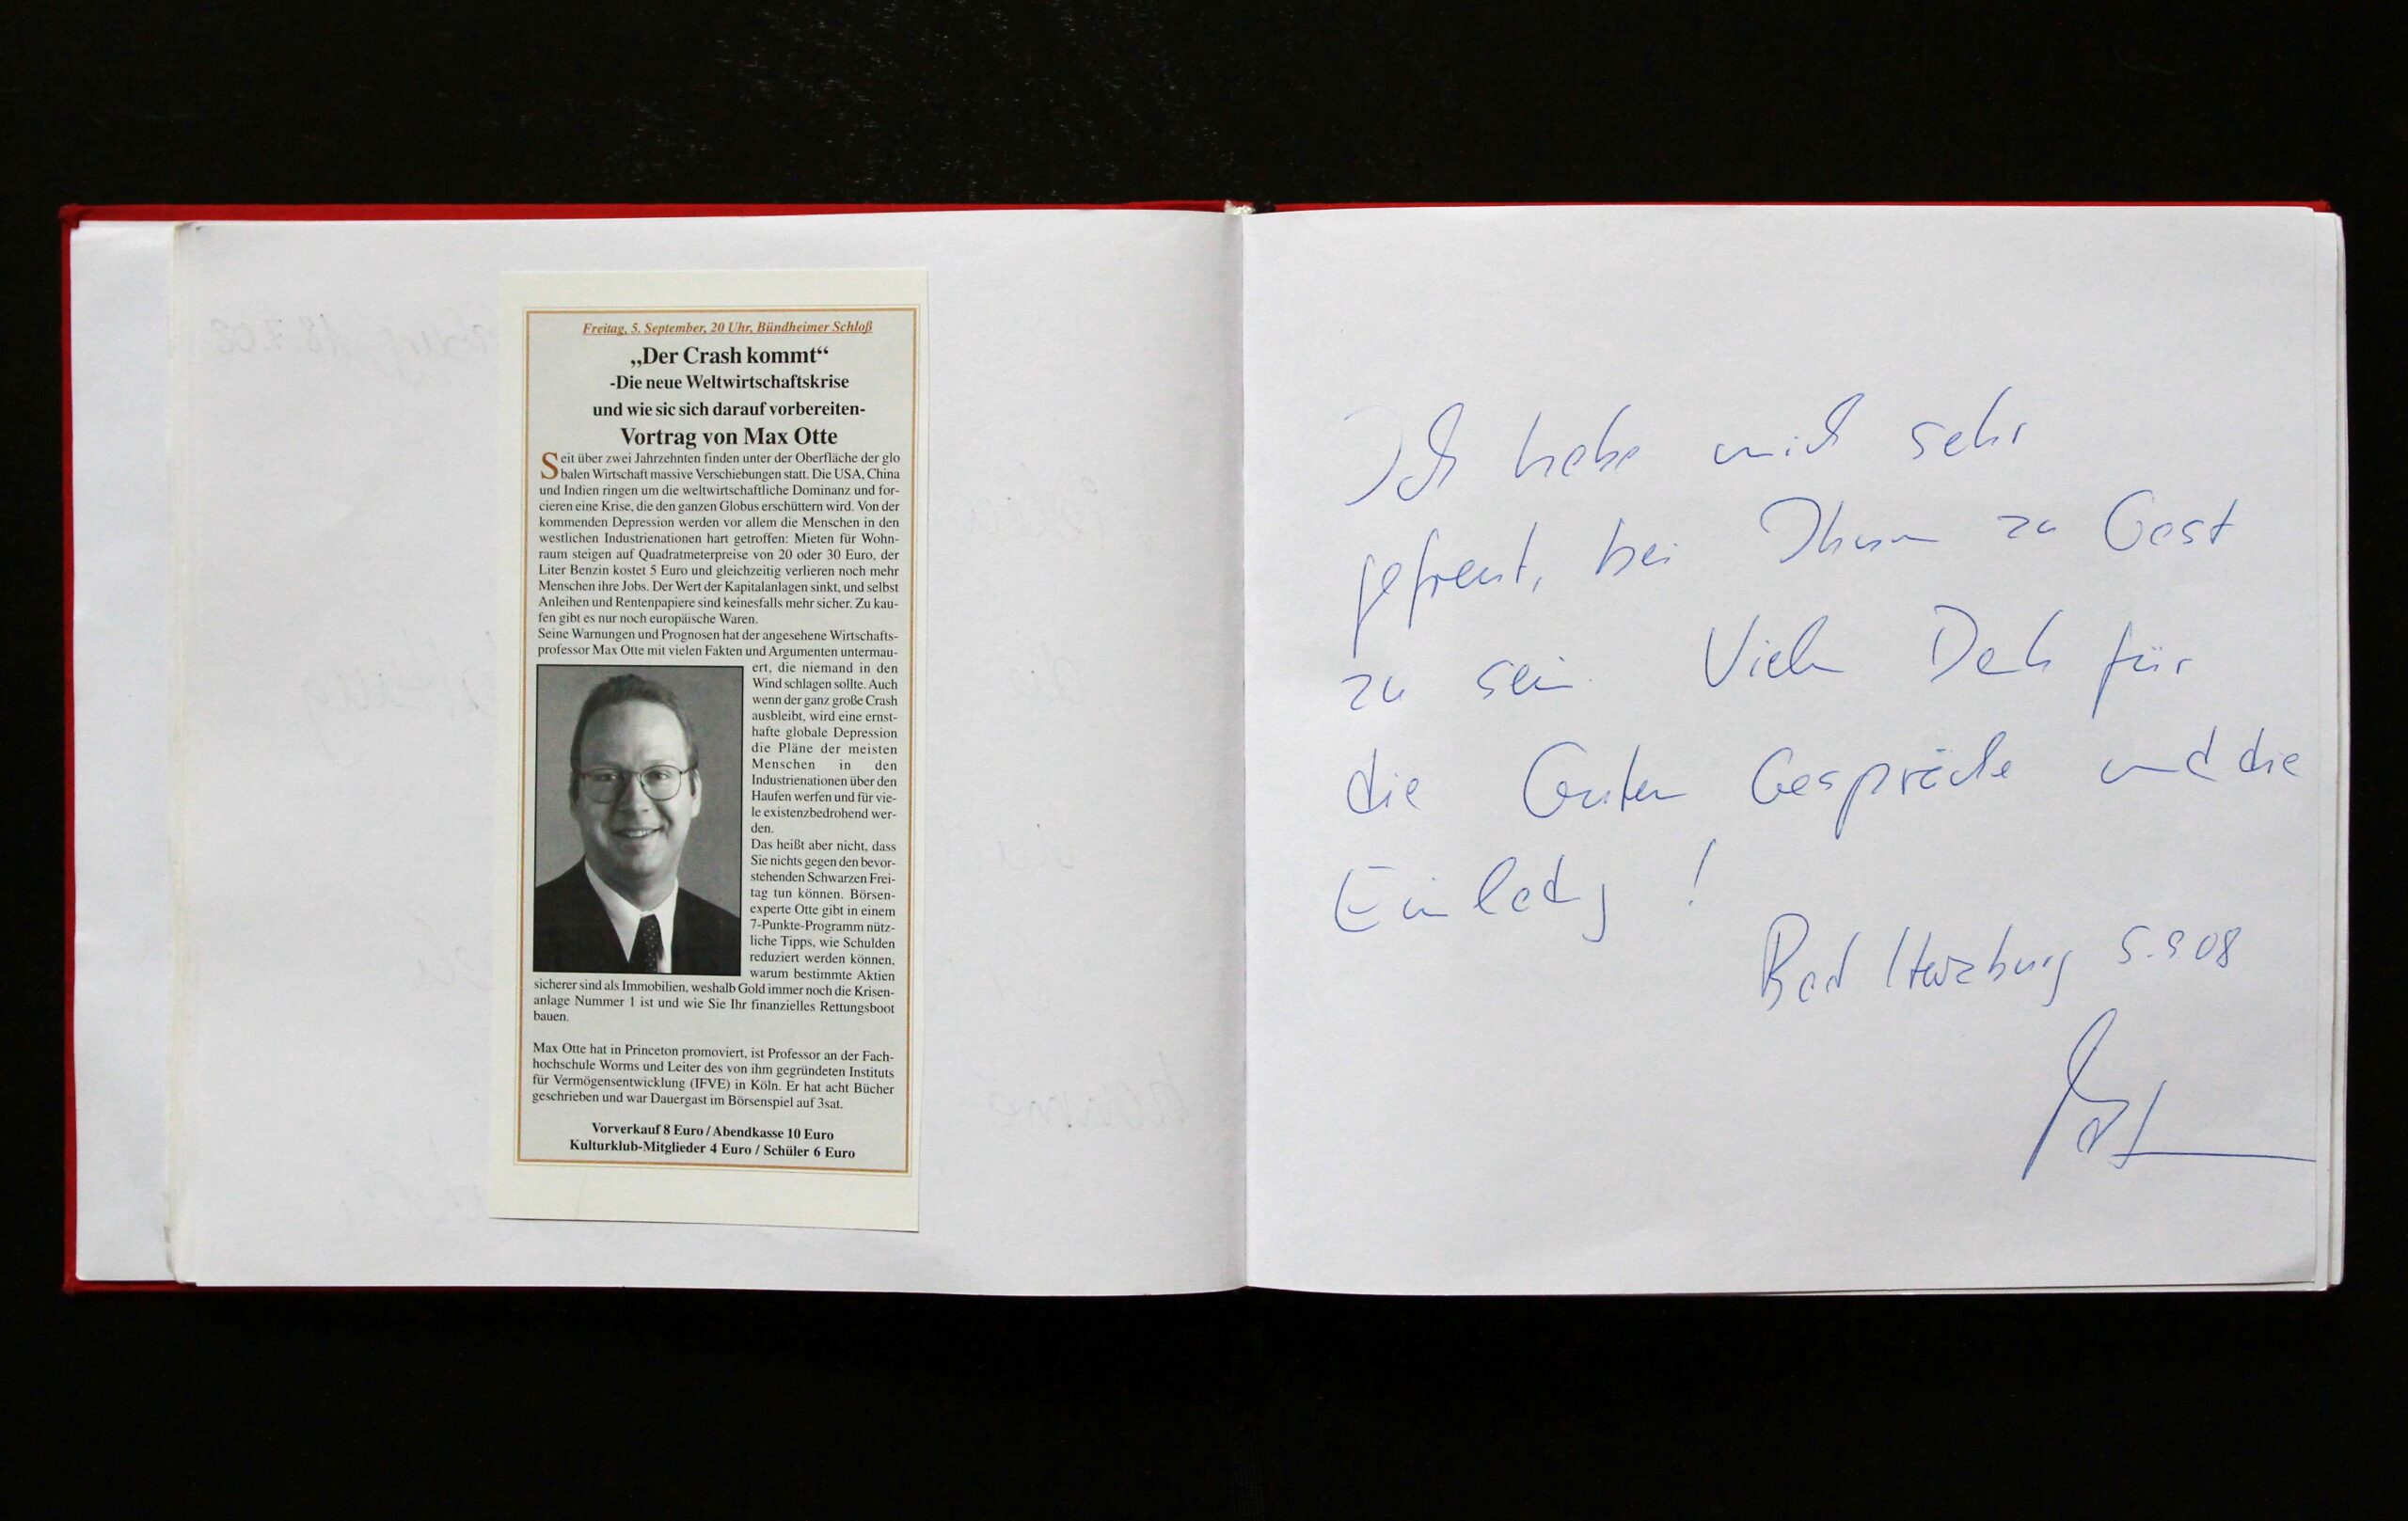 Freitag, 5. September, 20 Uhr, Bündheimer Schloß
„Der Crash kommt“
-Die neue Weltwirtschaftskrise
und wie sic sich darauf vorbereiten-
Vortrag von Max Otte
Seit über zwei Jahrzehnten finden unter der Oberfläche der glo
balen Wirtschaft massive Verschiebungen statt. Die USA, China
und Indien ringen um die weltwirtschaftliche Dominanz und for-
cieren eine Krise, die den ganzen Globus erschüttern wird. Von der
kommenden Depression werden vor allem die Menschen in den
westlichen Industrienationen hart getroffen: Mieten für Wohn-
raum steigen auf Quadratmeterpreise von 20 oder 30 Euro, der
Liter Benzin kostet 5 Euro und gleichzeitig verlieren noch mehr
Menschen ihre Jobs. Der Wert der Kapitalanlagen sinkt, und selbst
Anleihen und Rentenpapiere sind keinesfalls mehr sicher. Zu kau-
fen gibt es nur noch europäische Waren.
Seine Warnungen und Prognosen hat der angesehene Wirtschafts-
professor Max Otte mit vielen Fakten und Argumenten untermau-
ert, die niemand in den
Wind schlagen sollte. Auch
wenn der ganz große Crash
ausbleibt, wird eine ernst-
hafte globale Depression
die Pläne der meisten
Menschen in den
Industrienationen über den
Haufen werfen und für vie-
le existenzbedrohend wer-
den.
Das heißt aber nicht, dass
Sie nichts gegen den bevor-
stehenden Schwarzen Frei-
tag tun können. Börsen-
experte Otte gibt in einem
7-Punkte-Programm nütz-
liche Tipps, wie Schulden
reduziert werden können,
warum bestimmte Aktien
sicherer sind als Immobilien, weshalb Gold immer noch die Krisen-
anlage Nummer 1 ist und wie Sie Ihr finanzielles Rettungsboot
bauen.
Max Otte hat in Princeton promoviert, ist Professor an der Fach-
hochschule Worms und Leiter des von ihm gegründeten Instituts
für Vermögensentwicklung (IFVE) in Köln. Er hat acht Bücher
geschrieben und war Dauergast im Börsenspiel auf 3sat.
Vorverkauf 8 Euro / Abendkasse 10 Euro
Kulturklub-Mitglieder 4 Euro / Schüler 6 Euro
Ich habe mich sehr
gefreut, bei Ihnen zu Gast
zu sein. Vielen Dank für
die Guten Gespräche und die
Einladung !
Bad Harzburg 5.9.08